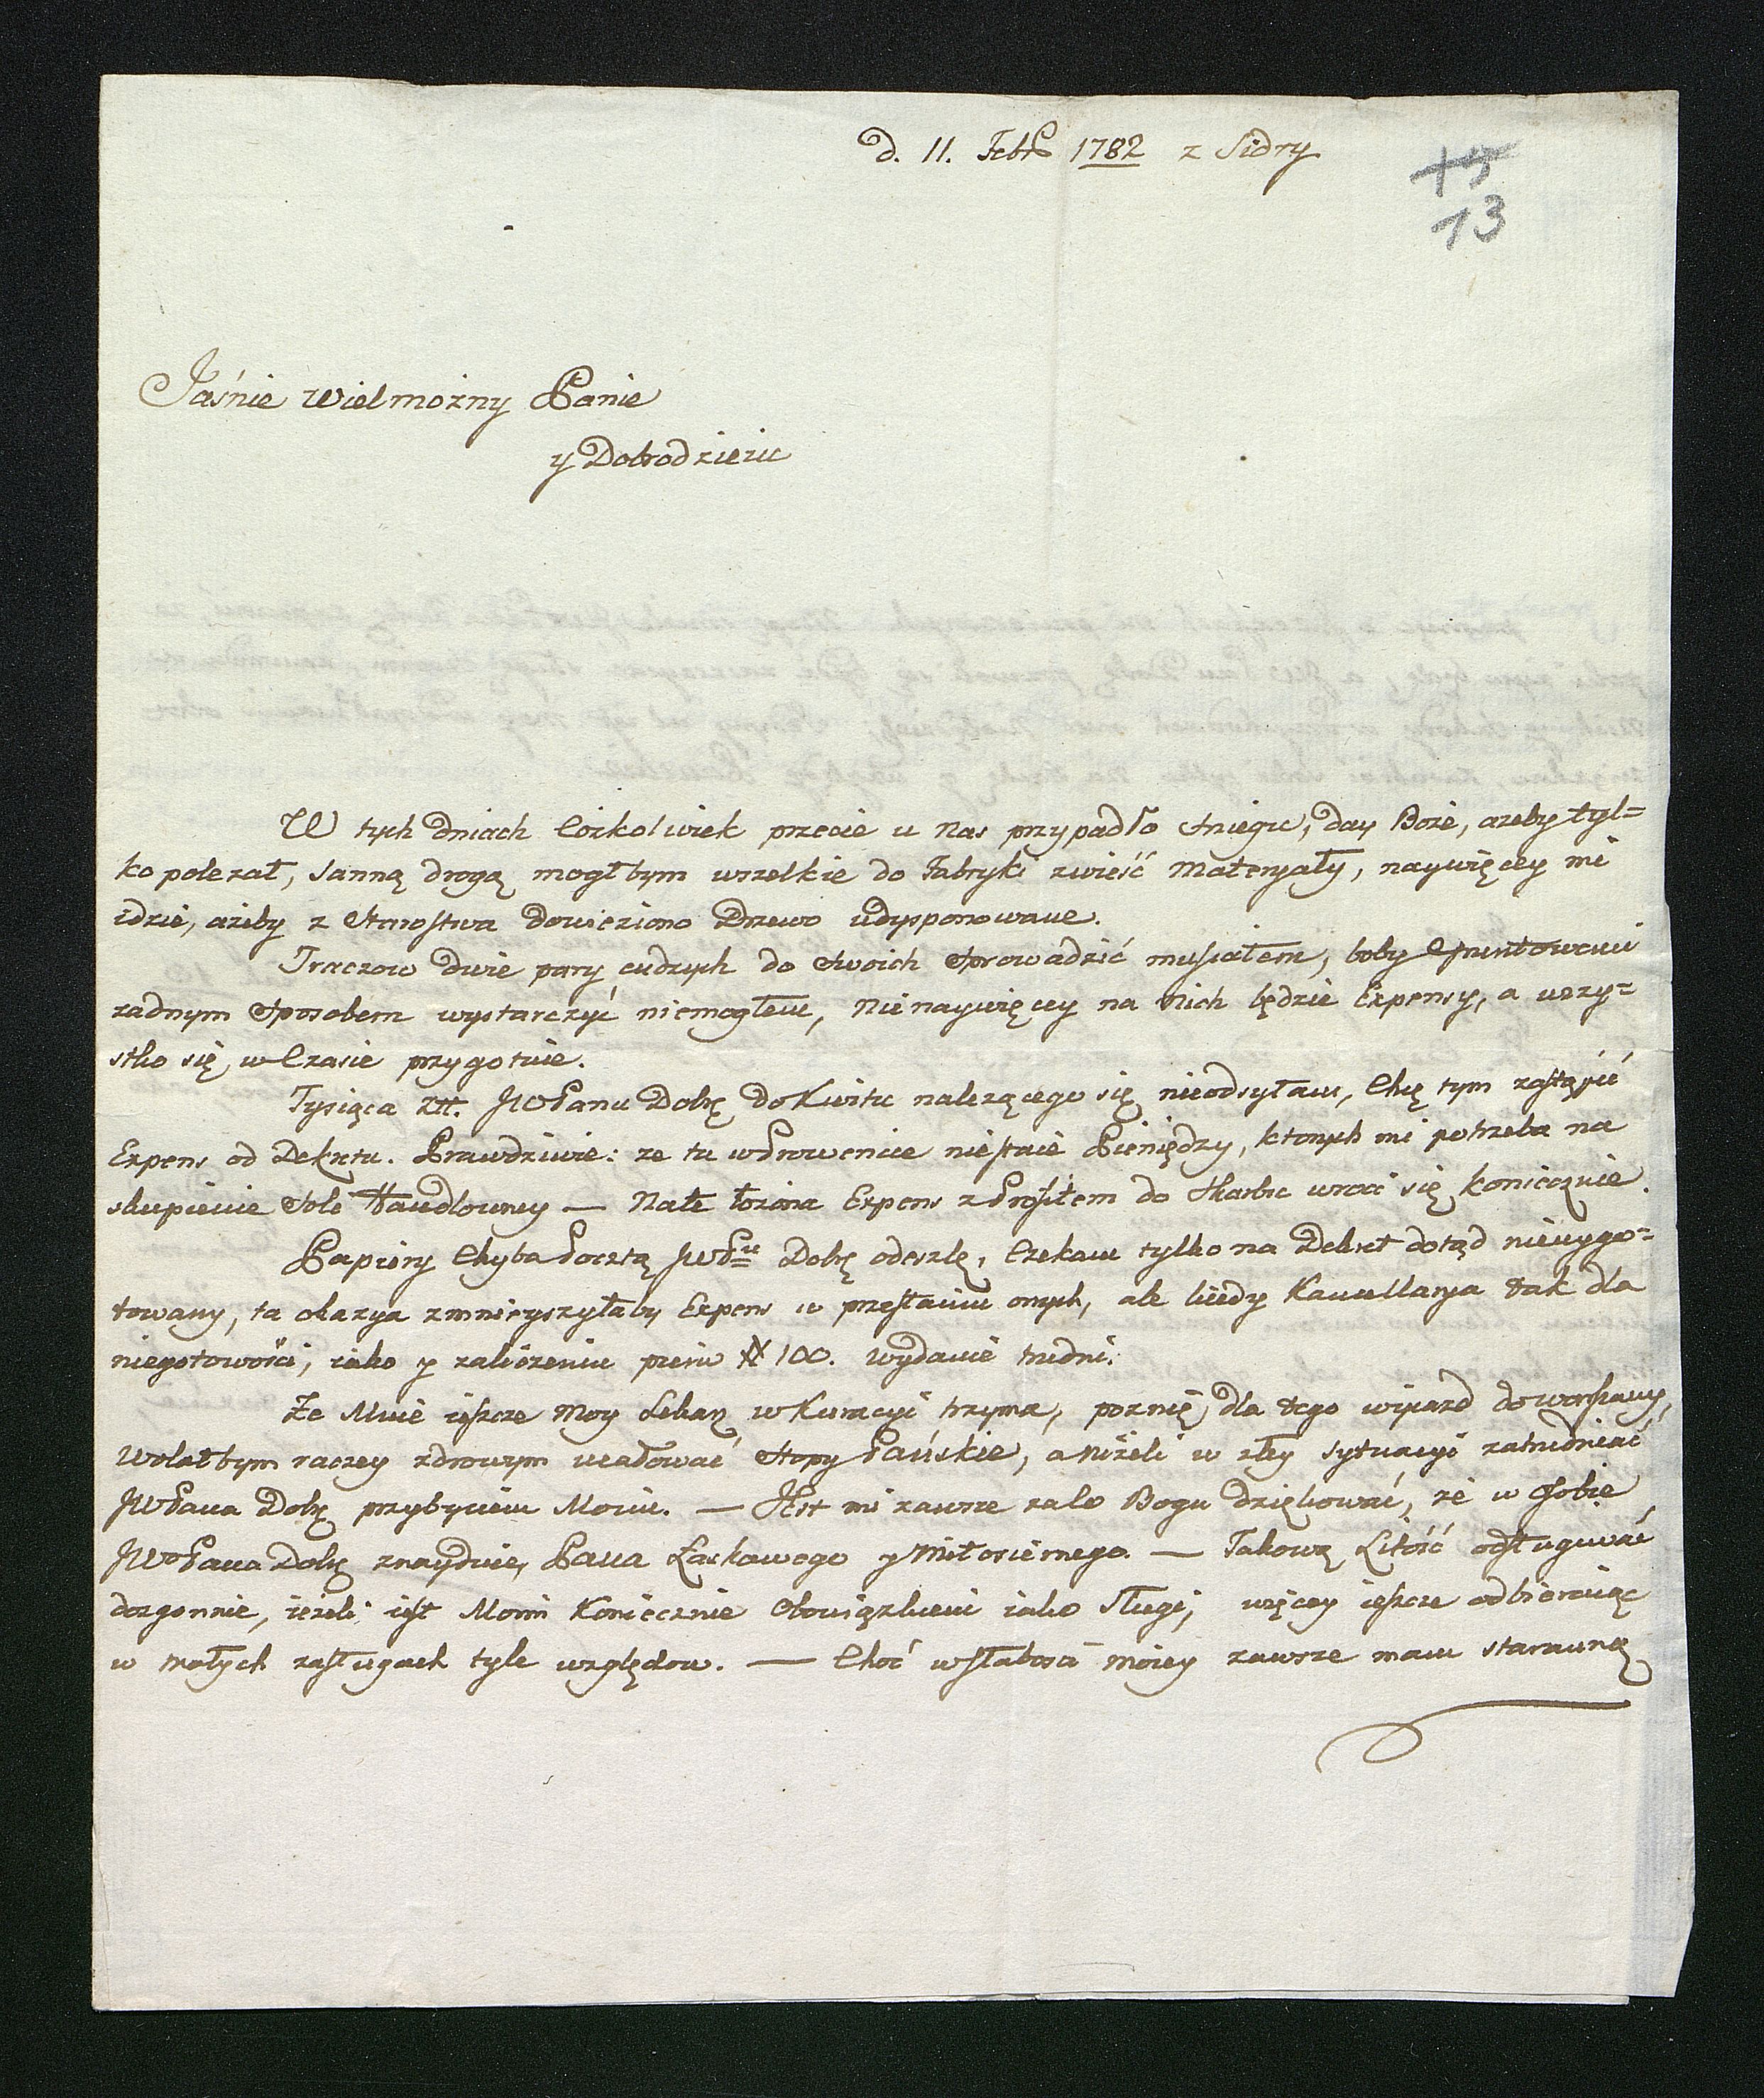 d. 11. Febr 1782 z Sidry
13
Jaśnie Wielmożny Panie
y Dobrodzieiu
W tych dniach Cożkolwiek przecie u Nas przypadło sniegu, day Boże, ażeby tyl=
ko polezał, Sanną drogą mogłbym wszelkie do Fabryki zwieść Materyały, naywięcey mi
idzie, ażeby z Starostwa dowieziono Drzewo udysponowane.
Traczow dwie pary cudzych do swoich sprowadzić musiałem, boby Gruntowemi
zadnym sposobem wystarczyć niemogłem, Nienaywięcey na Nich będzie Expensy, a wszy=
stko się w Czasie przygotuie.
Tysiąca Złł. JWPanu Dobę do Kwitu nalezącego się nieodsyłam, Chcę tym zastąpić
Expens od Dekretu. Prawdziwie: ze tu w Prowencie niestaie Pieniędzy, ktorych mi potrzeba na
skupienie Soli Handlowney — Na te łożone Expens z Profitem do Skarbu wroci się koniecznie.
Papiery Chyba Pocztą JWPu Dobę odeszlę, Czekam tylko na Dekret dotąd niewygo=
towany, ta okazya zmnieyszyłaby Expens w przesłaniu onych, ale kiedy Kancellarya tak dla
niegotowości, iako y zaliczeniu pieniu # 100. wydanie trudni.
Że Mnie ieszcze Moy Lekarz w Kuracyi trzyma, poznię dla tego wyiazd do Warszawy,
Wolałbym raczey zdrowym ucałować Stopy Pańskie, a niżeli w złey sytuacyi zatrudniać
JWPana Dobę przybyciem Moim. — Jest mi zawsze za co Bogu dziękować, że w Osobie
JWPana Dobę znayduię Pana Łaskawego y Miłosiernego. — Takową Litość odsługiwać
dozgonnie, ieżeli iest Moim Koniecznie Obowiązkiem iako Sługi, więcey ieszcze odbieraiąc
w małych zasługach tyle względow. — Choć w słabości moiey zawsze mam staranną